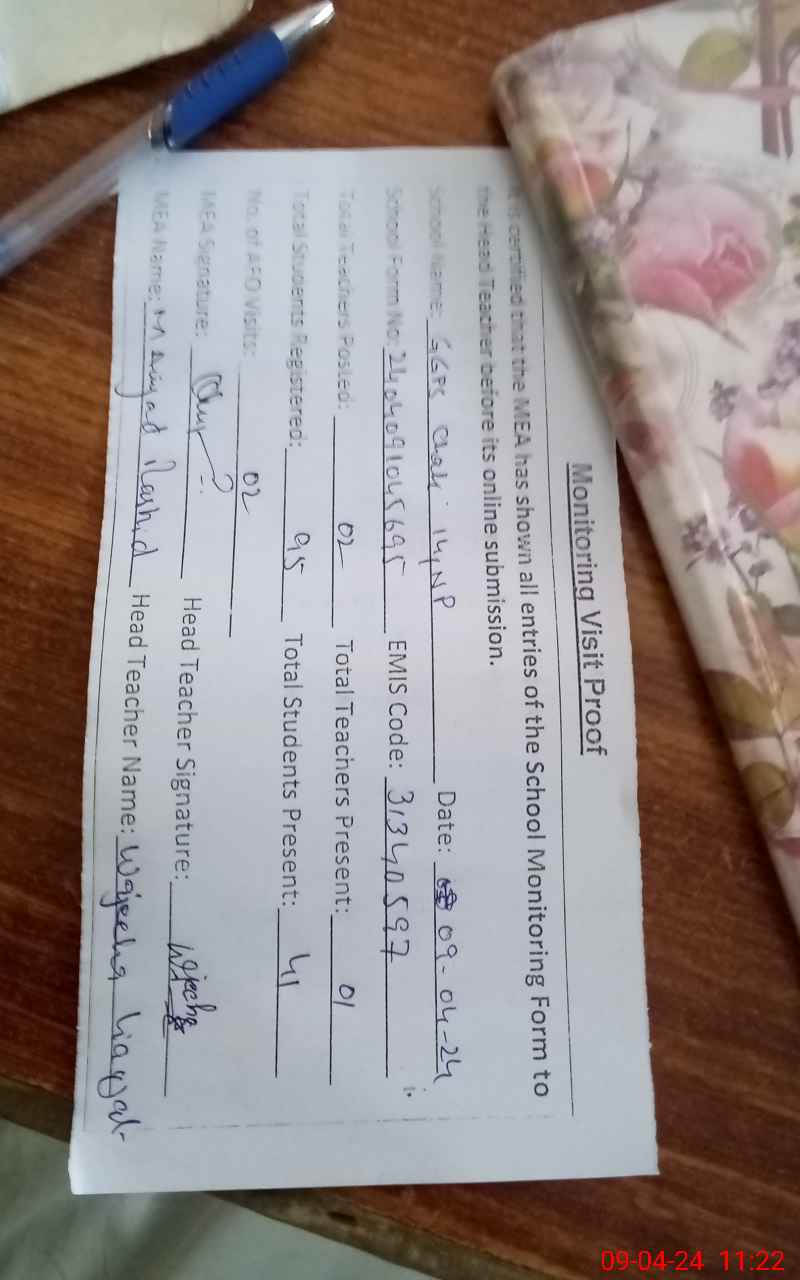 Monitoring Visit Proof
It is certified that the MEA has shown all entries of the School Monitoring Form to
the Head Teacher before its online submission.
School Name: GGPS Chak 14/NP Date: 09-04-24
School Form No: 2404091045695 EMIS Code: 31340597
Total Teachers Posted: 02 Total Teachers Present: 01
Total Students Registered: 95 Total Students Present: 41
No. of AEO Visits: 02
MEA Signature: Head Teacher Signature: Wajeeha
MEA Name: Rashid Head Teacher Name: Wajeeha Liaqat
09-04-24 11:22